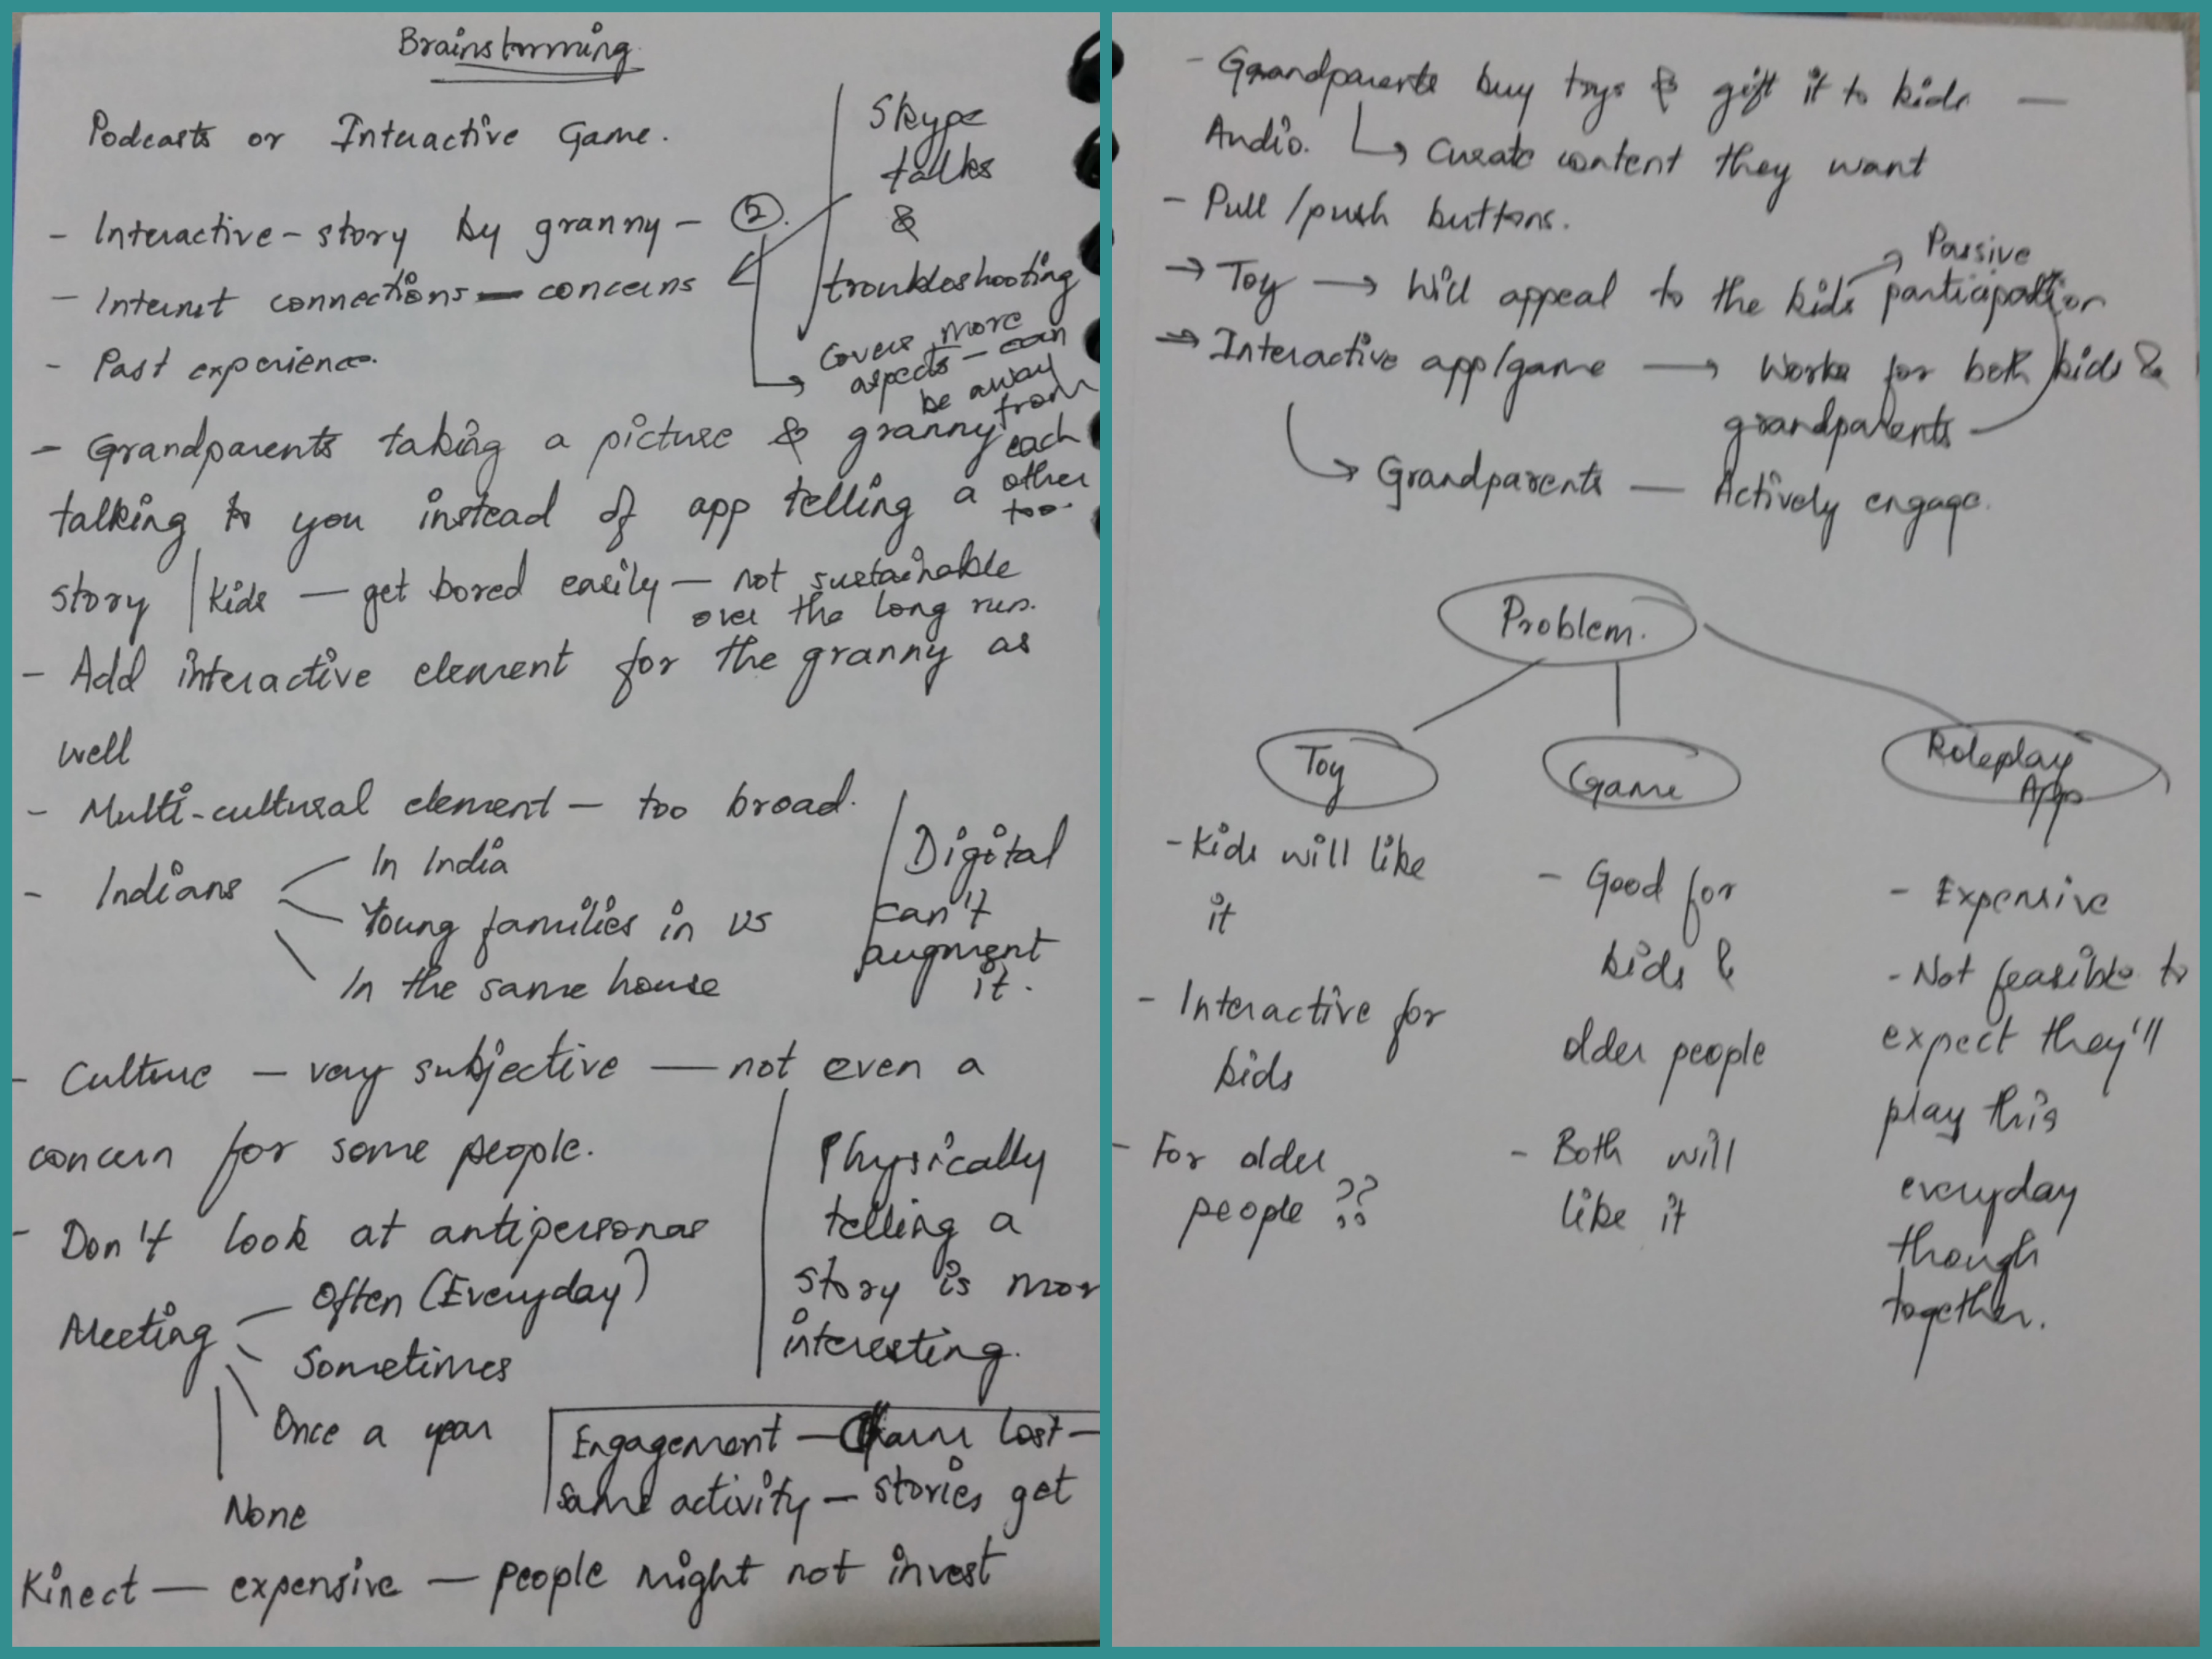 Brainstorming
Podcasts or Interactive Game.
- Interactive-story by granny - ②.
- Internet connections - concerns
- Past experience.
Skype
talks
&
troubleshooting
Covers more
aspects - can
be away
from
each
other
too.
- Grandparents taking a picture & granny
talking to you instead of app telling a
story | Kids - get bored easily - not sustainable
over the long run.
- Add interactive element for the granny as
well
- Multi-cultural element - too broad.
- Indians
In India
Young families in US
In the same house
Digital
can't
augment
it.
- Culture - very subjective - not even a
concern for some people.
- Don't look at antipersonas
Meeting
Often (Everyday)
Sometimes
Once a year
None
Physically
telling a
story is mor
interesting.
Engagement - Charm lost -
same activity - stories get
Kinect - expensive - people might not invest
- Grandparents buy toys & gift it to kids -
Audio. ↳ Curate content they want
- Pull /push buttons.
→ Toy → Will appeal to the kids
Passive
participation
⇒ Interactive app/game → Works for both kids &
grandparents
↳ Grandparents - Actively engage.
Problem.
Toy
- Kids will like
it
- Interactive for
kids
- For older
people ??
Game
- Good for
kids &
older people
- Both will
like it
Roleplay
App
- Expensive
- Not feasible to
expect they'll
play this
everyday
though
together.